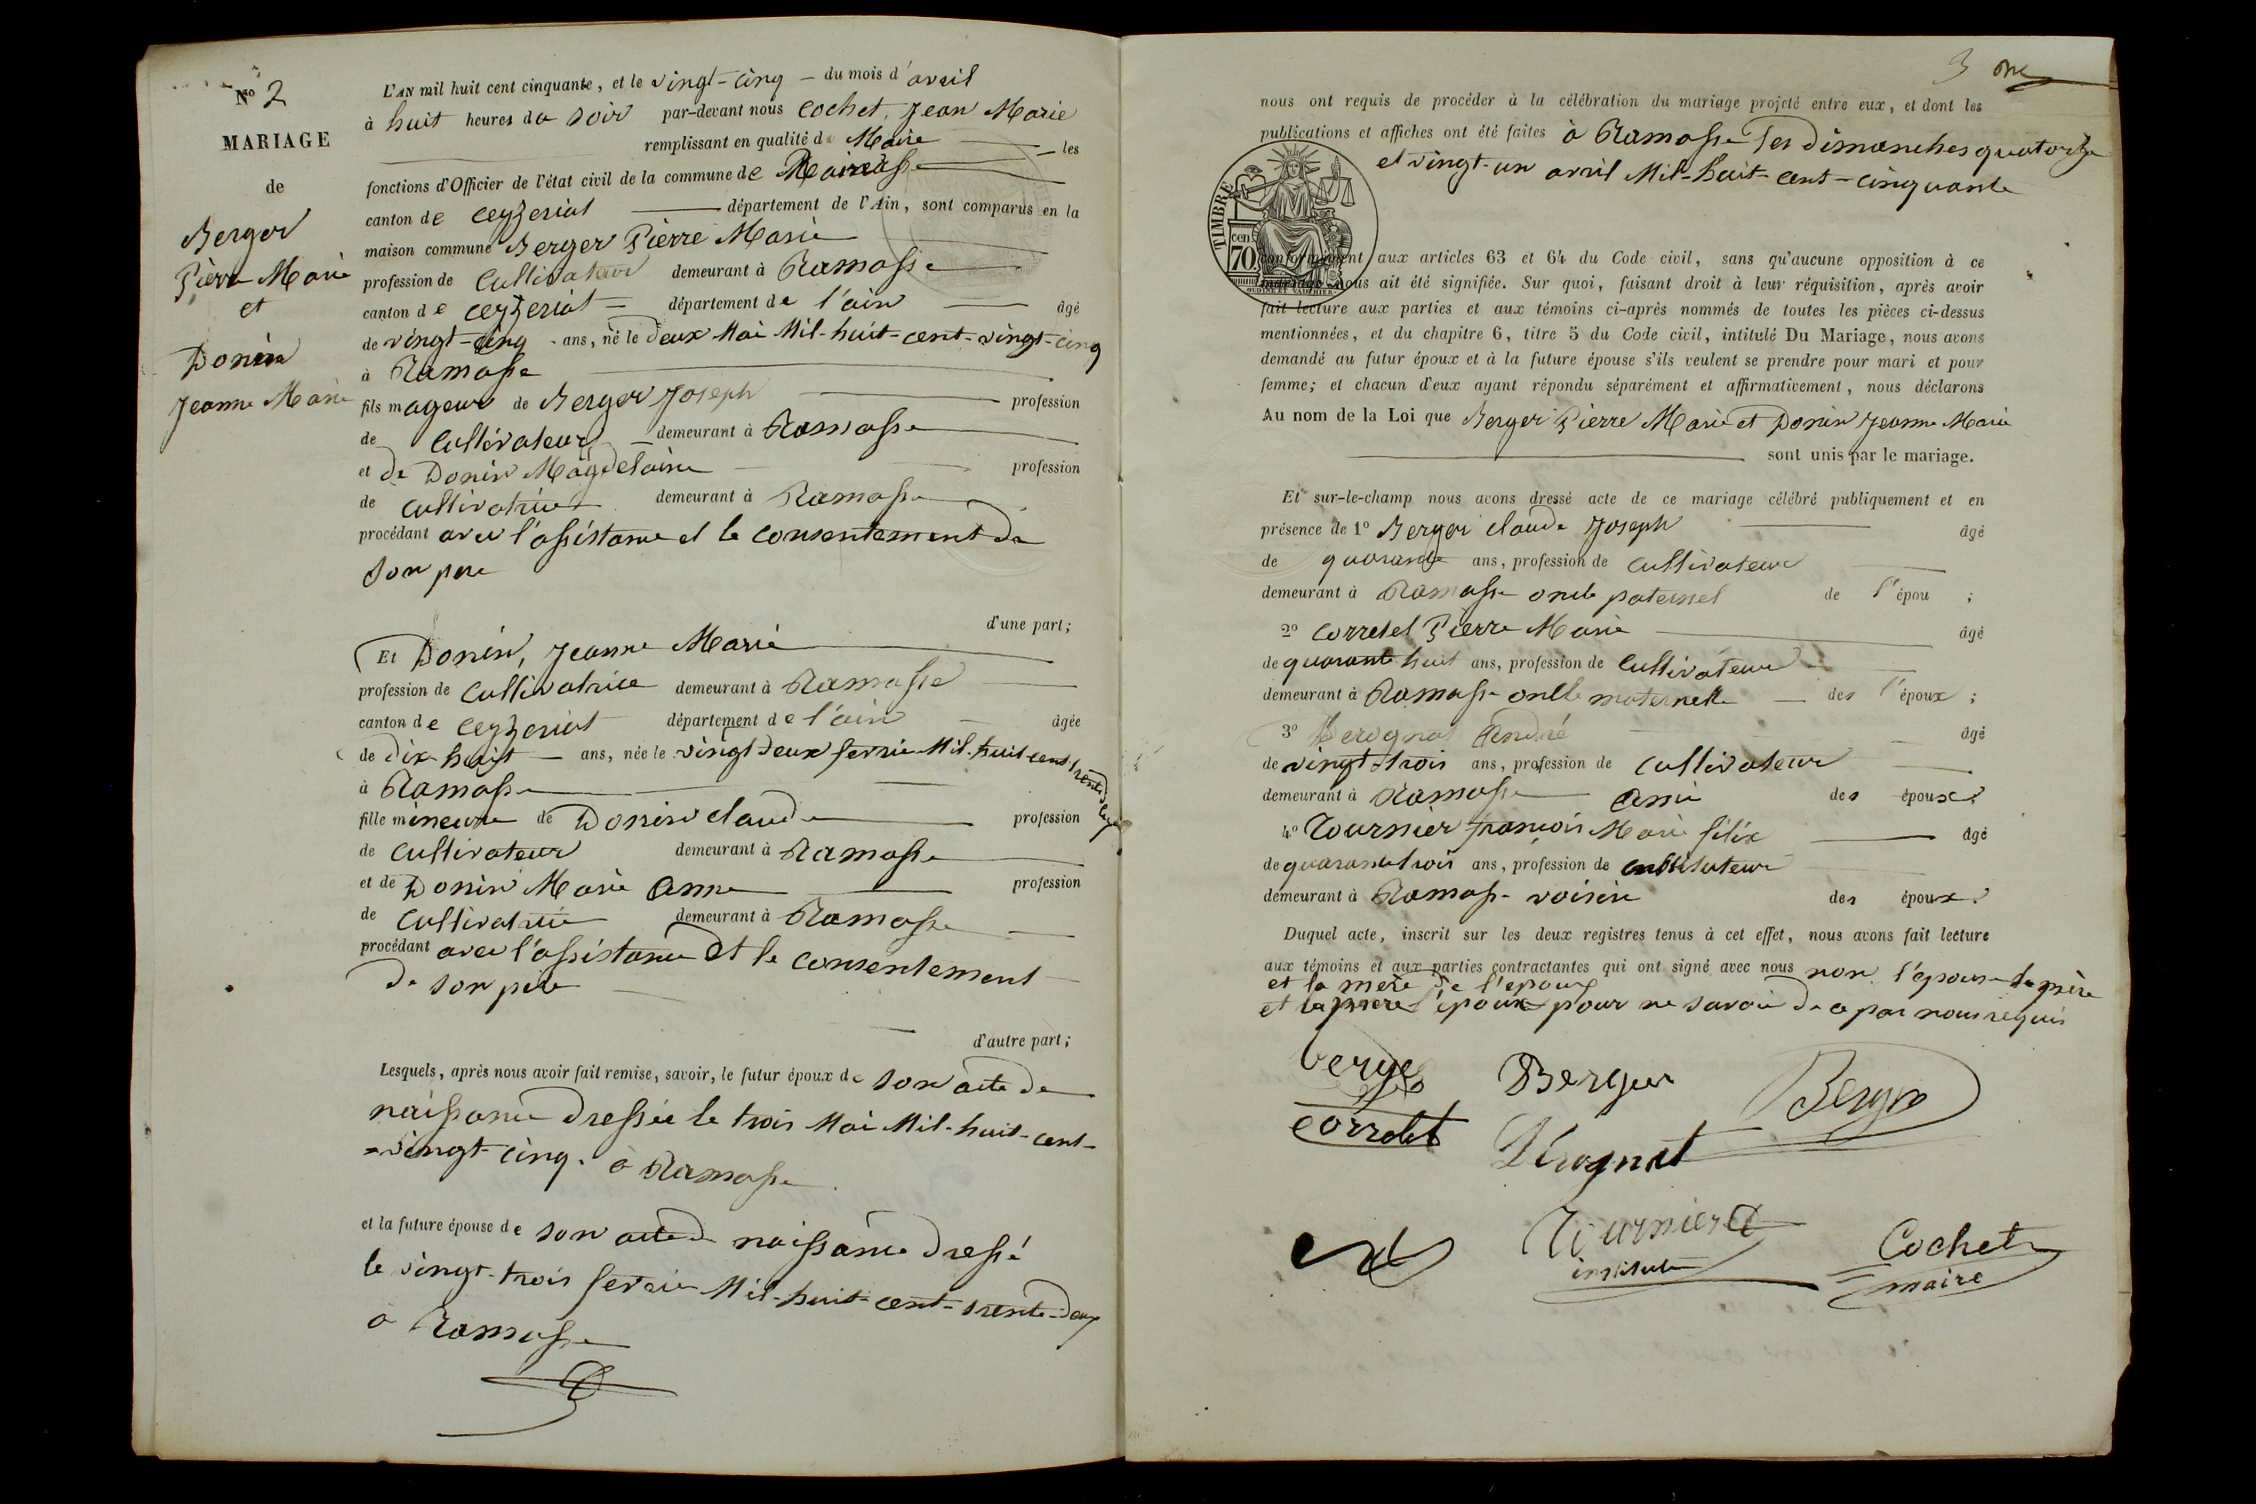 N° 2
MARIAGE
de
Berger
Pierre Marie
et
Donin
Jeanne Marie
L'AN mil huit cent cinquante, et le vingt-cinq du mois d'avril
à huit heures du soir par-devant nous Cochet, Jean Marie
remplissant en qualité de Maire les
fonctions d'Officier de l'état civil de la commune de Ramasse
canton de Ceyzeriat département de l'Ain, sont comparus en la
maison commune Berger Pierre Marie
profession de Cultivateur demeurant à Ramasse
canton de Ceyzeriat département de l'ain âgé
de vingt-cinq ans, né le deux Mai Mil-huit-cent-vingt-cinq
à Ramasse
fils mageur de Berger Joseph profession
de Cultivateur demeurant à Ramasse
et de Donin Magdelaine profession
de Cultivatrice demeurant à Ramasse
procédant avec l'assistance et le consentement de
son pere
d'une part;
Et Donin, Jeanne Marie
profession de Cultivatrice demeurant à Ramasse
canton de Ceyzeriat département de l'ain âgée
de dix huit ans, née le vingt deux fevrie Mil-huit-cent trente deux
à Ramasse
fille mineure de Donin claude profession
de Cultivateur demeurant à Ramasse
et de Donin Marie Anne profession
de Cultivatrice demeurant à Ramasse
procédant avec l'assistance et le consentement
de son père
d'autre part;
Lesquels, après nous avoir fait remise, savoir, le futur époux de son acte de
naissance dressée le trois Mai Mil-huit-cent-
vingt-cinq. à Ramasse
et la future épouse de son acte de naissance dressé
le vingt-trois fevrie Mil-huit-cent-trente-deux
à Ramasse
3
nous ont requis de procéder à la célébration du mariage projeté entre eux, et dont les
publications et affiches ont été faites à Ramasse les dimanches quatorze
et vingt-un avril Mil-huit-cent-cinquante
TIMBRE
70 cen.
conformément aux articles 63 et 64 du Code civil, sans qu'aucune opposition à ce
mariage nous ait été signifiée. Sur quoi, faisant droit à leur réquisition, après avoir
fait lecture aux parties et aux témoins ci-après nommés de toutes les pièces ci-dessus
mentionnées, et du chapitre 6, titre 5 du Code civil, intitulé Du Mariage, nous avons
demandé au futur époux et à la future épouse s'ils veulent se prendre pour mari et pour
femme; et chacun d'eux ayant répondu séparément et affirmativement, nous déclarons
Au nom de la Loi que Berger Pierre Marie et Donin Jeanne Marie
sont unis par le mariage.
Et sur-le-champ nous avons dressé acte de ce mariage célébré publiquement et en
présence de 1° Berger claude Joseph âgé
de quarante ans, profession de Cultivateur
demeurant à Ramasse oncle paternel de l'épou ;
2° Corretel Pierre Marie âgé
de quarante huit ans, profession de Cultivateur
demeurant à Ramasse oncle maternelle des l'époux ;
3° Perognat André âgé
de vingt-trois ans, profession de Cultivateur
demeurant à Ramasse ami des époux;
4° Tournier françois Marie félix âgé
de quarante trois ans, profession de instituteur
demeurant à Ramasse voisin des époux.
Duquel acte, inscrit sur les deux registres tenus à cet effet, nous avons fait lecture
aux témoins et aux parties contractantes qui ont signé avec nous non l'épouse la mère
et la mere de l'epoux
et la mere l'époux pour ne savoir de ce par nous requis
Berger Berger
corretet
Pérognat
Tournier
instituteur
Cochet
maire